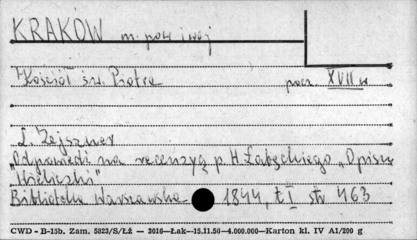 KRAKÓW m. pow. i woj
Kościół św. Piotra pocz. XVII w
L. Zejszner
"Odpowiedź na recenzyą p. H. Łabęckiego "Opisu
Wieliczki"
Biblioteka Warszawska 1844, t I str 463
CWD - B-15b. Zam. 5823/S/ŁŻ — 3016—Łak—15.11.50—4.000.000—Karton kl. IV A1/200 g